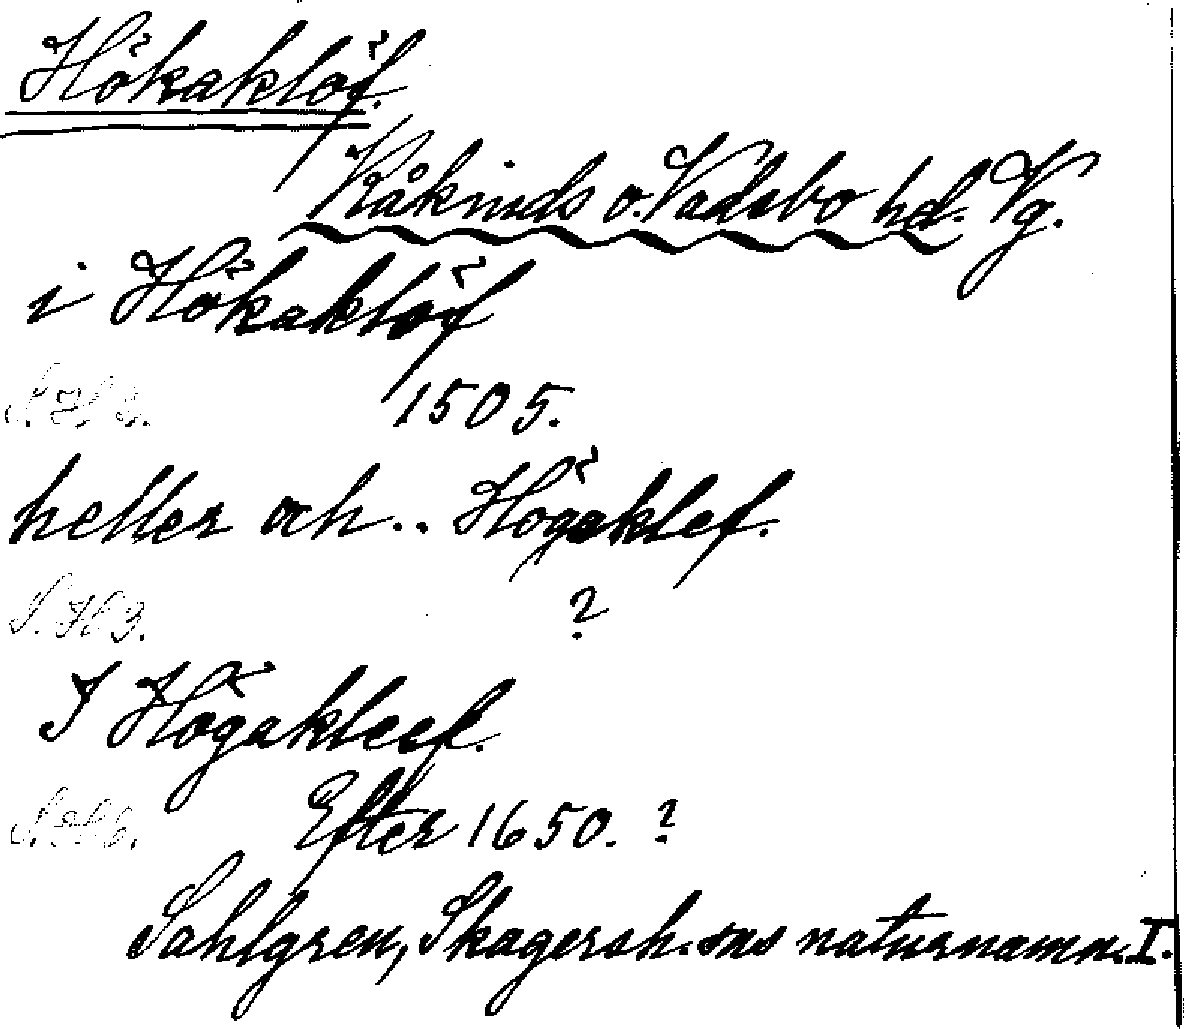 Hökaklöf.
Kåkinds o. Vadsbo hd. Vg.
i Hökaklöf
1505.
heller och.. Högaklef.
S. H 3. ?
I Högakleef.
S. H 6. Efter 1650. ?
Sahlgren, Skagersh. sns naturnamn. I.